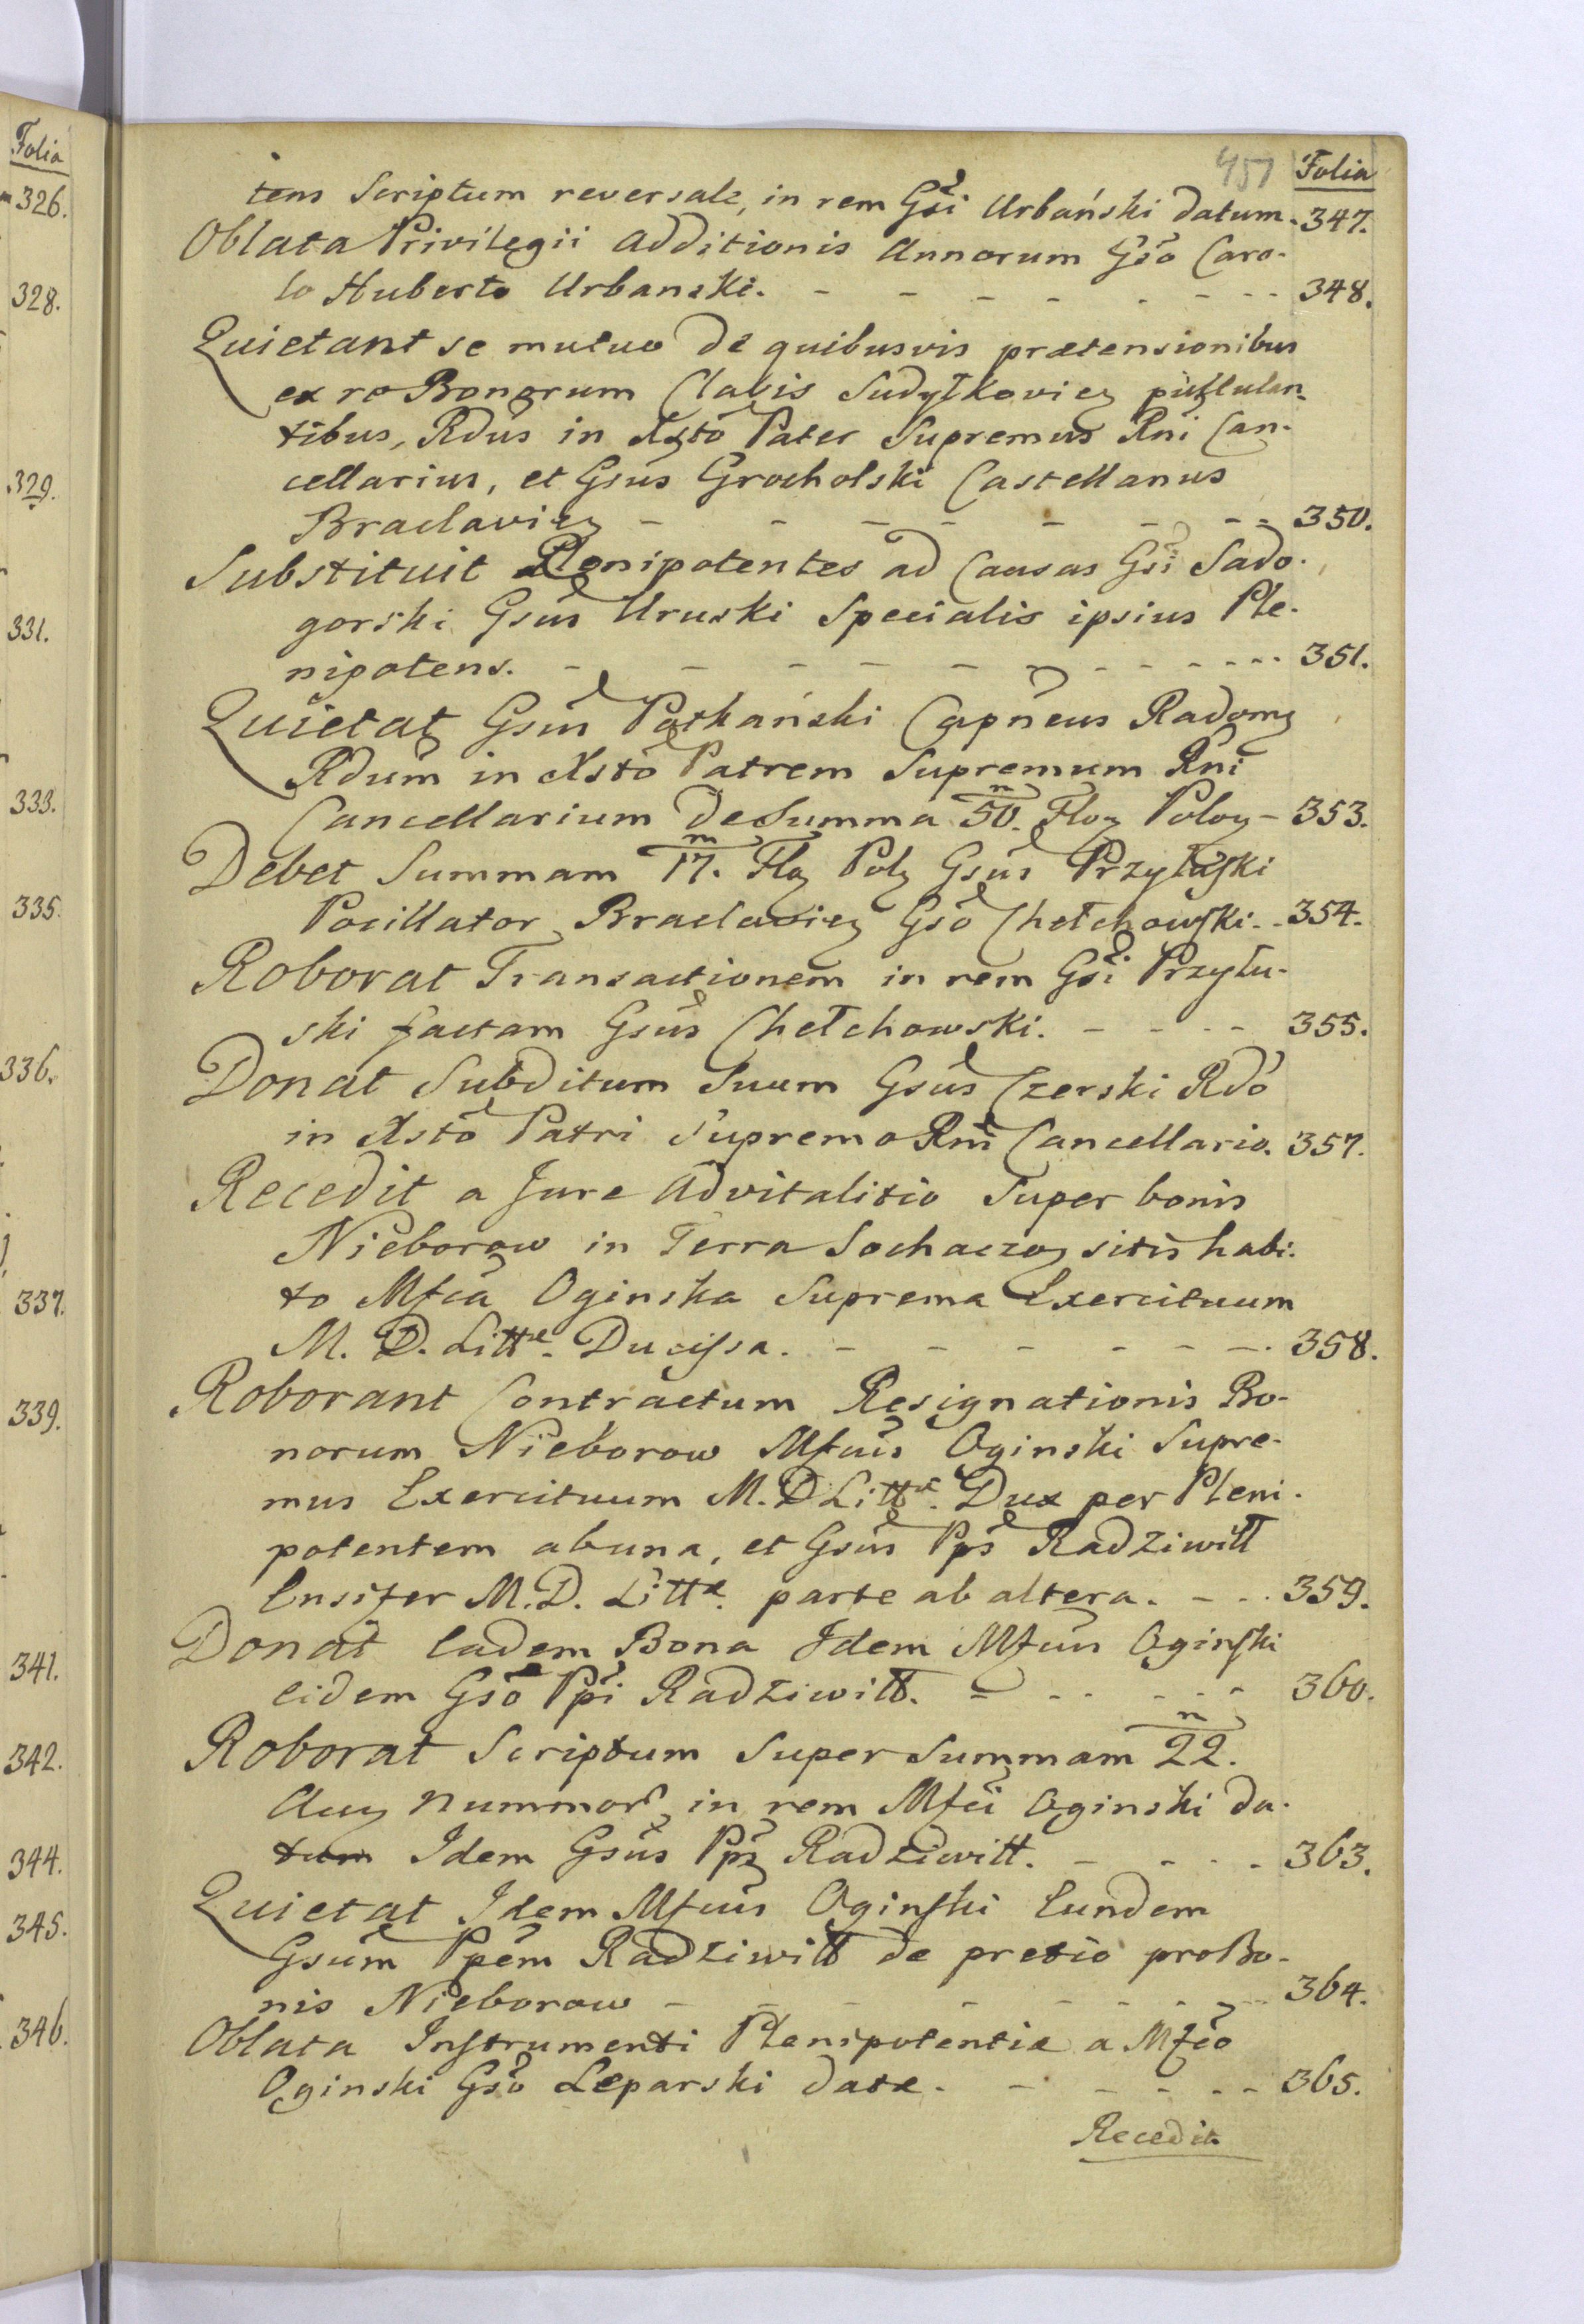 Folia
326.
328.
329.
331.
333.
335.
336.
337.
339.
341.
342.
344.
345.
346.
451 Folia
tens Scriptum reversale, in rem Gsi Urbański datum. 347.
Oblata Privilegii Additionis Annorum Gso Caro-
lo Huberto Urbanski. - - - - - - - 348.
Quietant se mutuo de quibusvis prætensionibus
ex re Bonorum Clavis Sudyłkoviey
tibus, Rdus in Xsto Pater Supremus Rni Can-
cellarius, et Gsus Grocholski Castellanus
Braclaviey - - - - - - - 350.
Substituit Plenipotentes ad Causas Gsi Sado-
gorski Gsus Uruski Specialis ipsius Ple-
nipotens. - - - - - - - - - 351.
Quietat Gsus Potkański Capneus Radomy
Rdum in Xsto Patrem Supremum Rni
Cancellarium de Summa 50.m Floy Poloy - 353.
Debet Summam 17.m Floy Poly Gsus Przyłuski
Pocillator Braclaviey Gso Chełchowski. - 354.
Roborat Transactionem in rem Gsi Przyłu-
ski factam Gsus Chełchowski. - - - - 355.
Donat Subditum Suum Gsus Czerski Rdo
in Xsto Patri Supremo Rni Cancellario. 357.
Recedit a Jure Advitalitio Super bonis
Nieborow in Terra Sochaczoy sitis habi-
to Mfca Oginska Suprema Exercituum
M. D. Littæ. Ducissa. - - - - - - 358.
Roborant Contractum Resignationis Bo-
norum Nieborow Mfcus Oginski Supre-
mus Exercituum M. D Littæ. Dux per Pleni-
potentem abuna, et Gsus Pps Radziwiłł
Ensifer M. D. Littæ. parte ab altera. - - - 359.
Donat Eadem Bona Idem Mfcus Oginski
eidem Gso Ppi Radziwiłł. - - - - - - 360.
Roborat Scriptum Super Summam 22.m
Auy nummor in rem Mfci Oginski da-
tum Idem Gsus Pps Radziwiłł. - - - - 363.
Quietat Idem Mfcus Oginski Eundem
Gsum Ppem Radziwiłł de pretio pro Bo-
nis Nieborow - - - - - - - - 364.
Oblata Instrumenti Plenipotentiæ a Mfco
Oginski Gso Leparski datæ. - - - - - 365.
Recedit